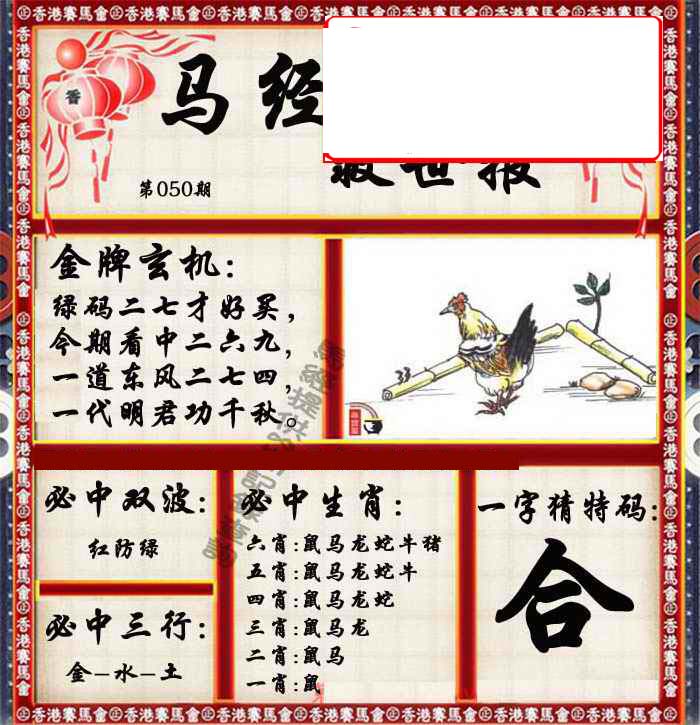 香港赛馬會
香
马经
救世报
第050期
金牌玄机:
绿码二七才好买,
今期看中二六九,
一道东风二七四,
一代明君功千秋。
必中双波:
红防绿
必中三行:
金–水–土
必中生肖:
六肖:鼠马龙蛇牛猪
五肖:鼠马龙蛇牛
四肖:鼠马龙蛇
三肖:鼠马龙
二肖:鼠马
一肖:鼠
一字猜特码:
合